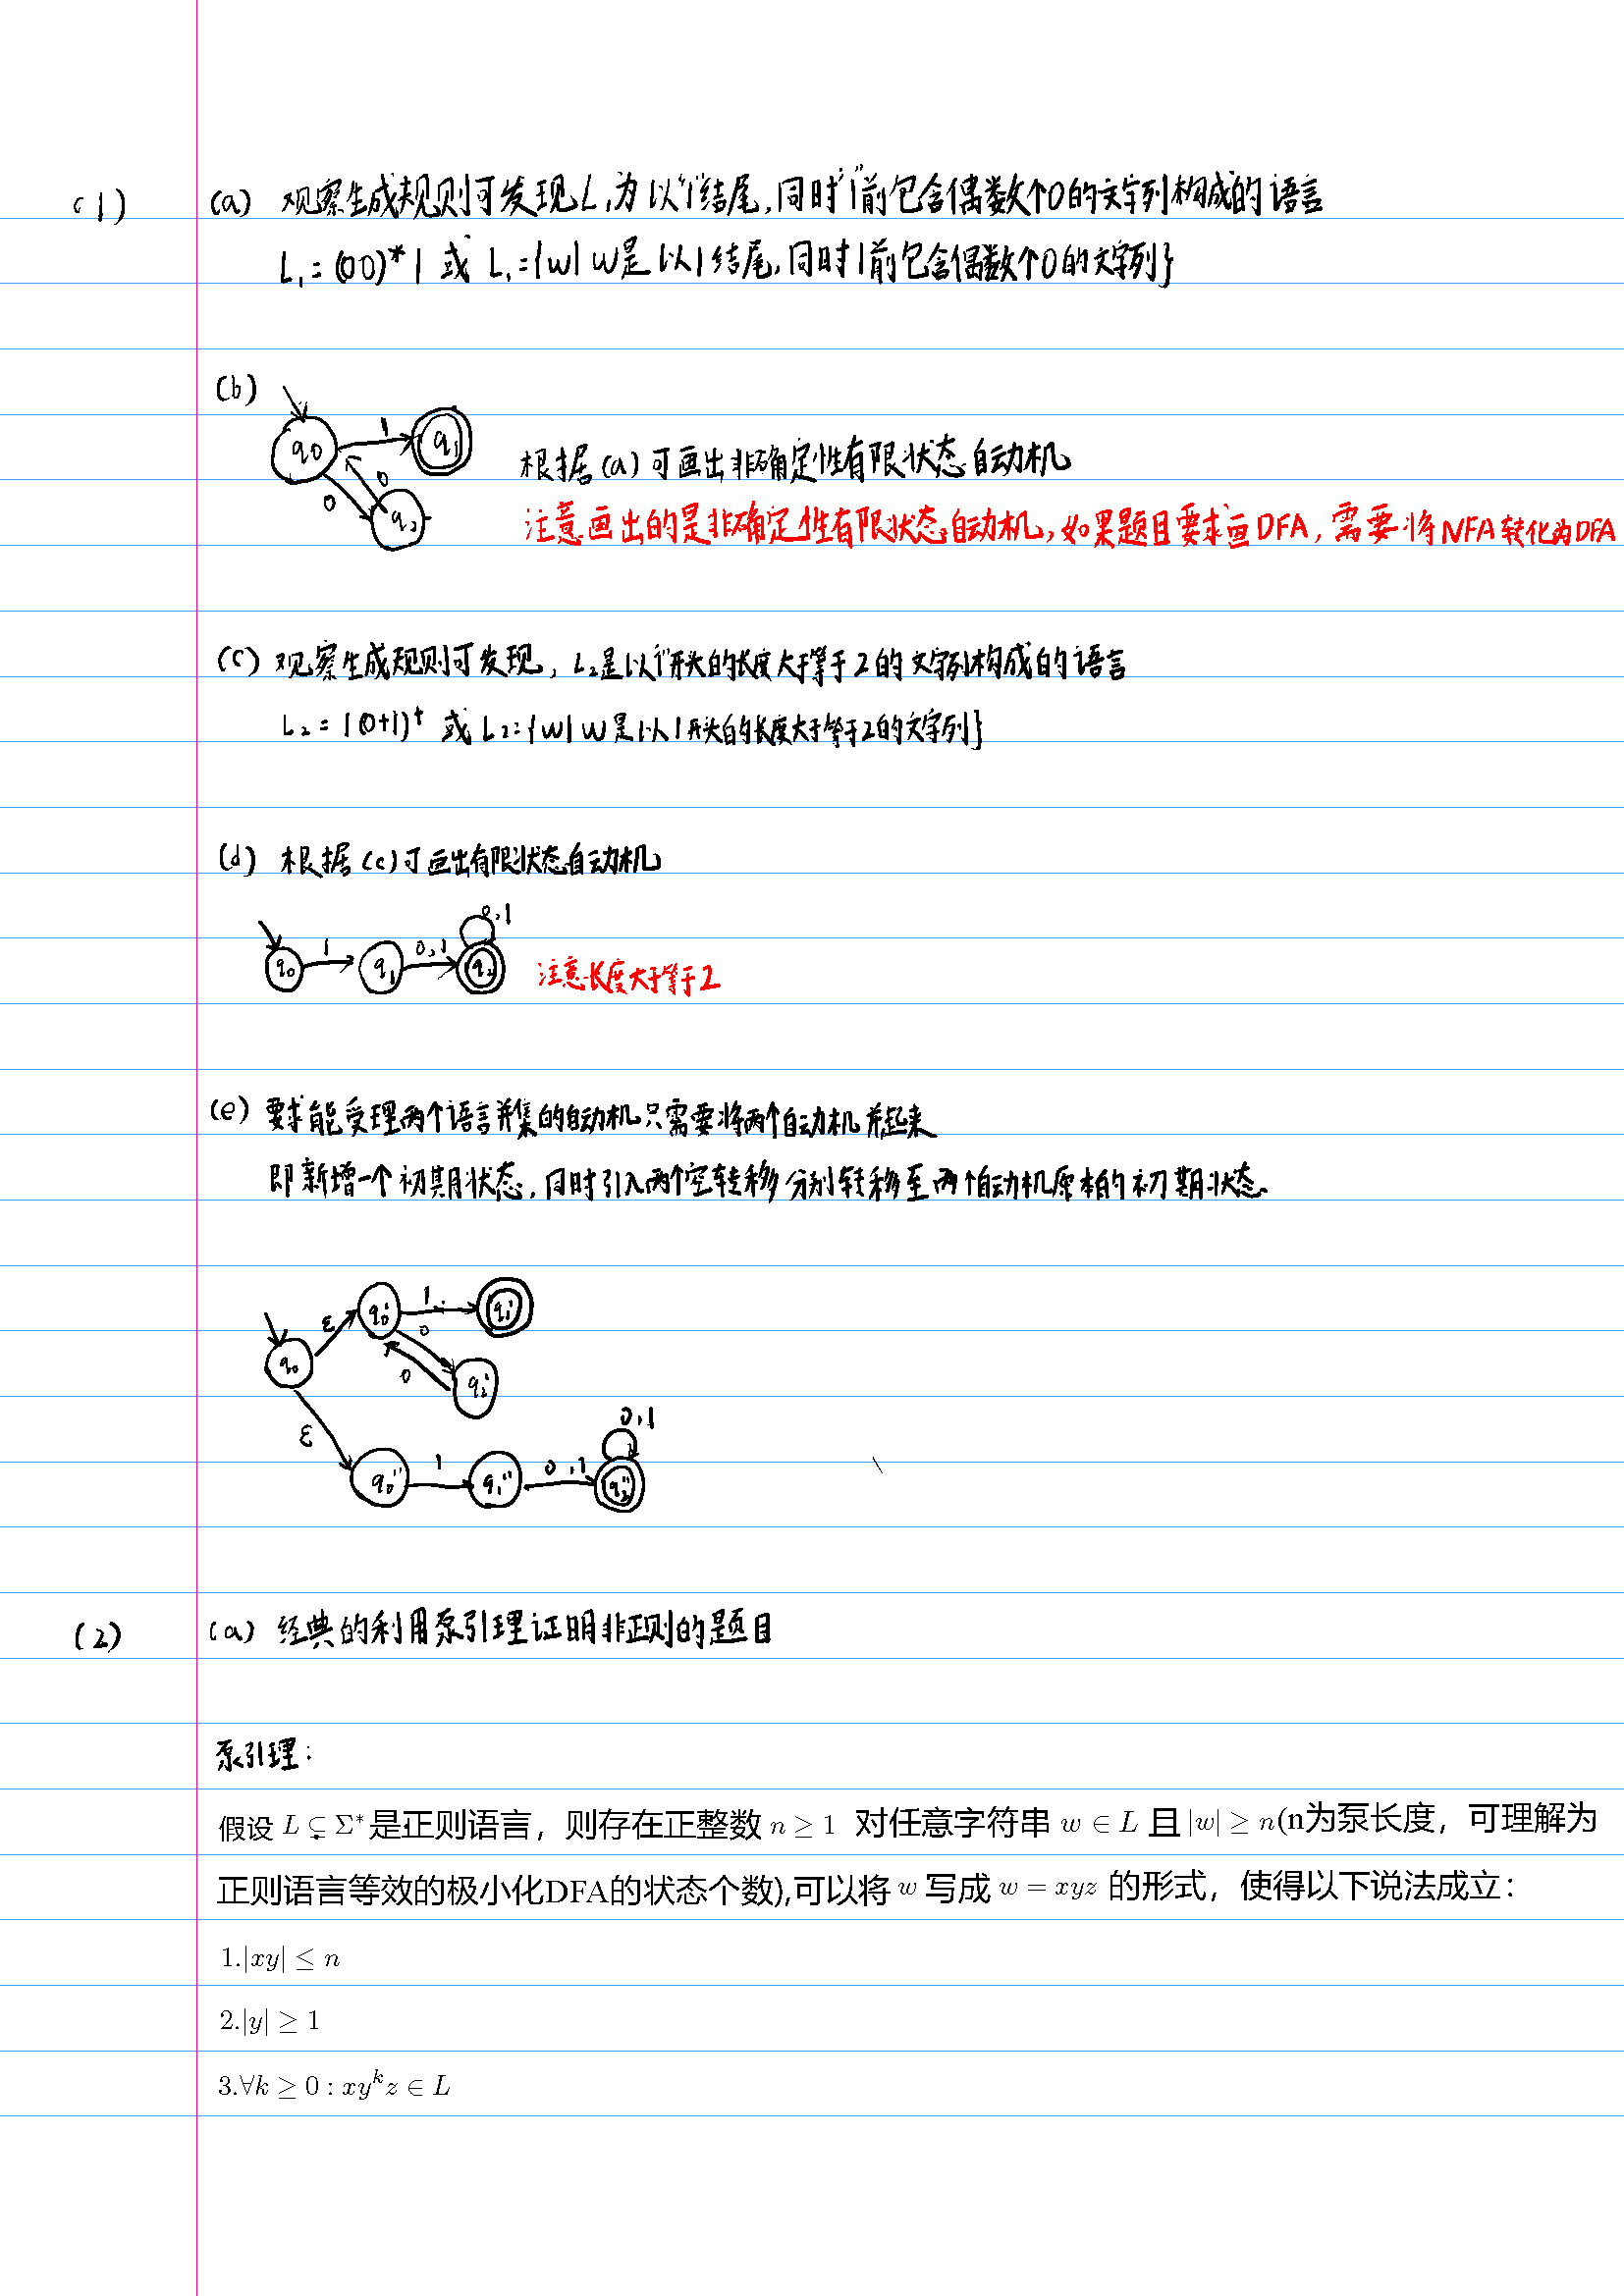 (1) (a) 观察生成规则可发现L₁为以"1"结尾,同时"1"前包含偶数个0的文字列构成的语言
L₁=(00)*1 或 L₁={w|w是以1结尾,同时1前包含偶数个0的文字列}
(b)
q0 1 q1
0 0 q2
根据(a)可画出非确定性有限状态自动机
注意画出的是非确定性有限状态自动机,如果题目要求画DFA,需要将NFA转化为DFA
(c) 观察生成规则可发现,L₂是以"1"开头的长度大于等于2的文字列构成的语言
L₂=1(0+1)⁺ 或 L₂={w|w是以1开头的长度大于等于2的文字列}
(d) 根据(c)可画出有限状态自动机
0,1
q0 1 q1 0,1 q2 注意长度大于等于2
(e) 要求能受理两个语言并集的自动机只需要将两个自动机并起来
即新增一个初期状态,同时引入两个空转移分别转移至两个自动机原本的初期状态
q0 ε q0' 1 q1'
0 0 q2'
0,1
ε q0'' 1 q1'' 0,1 q2''
(2) (a) 经典的利用泵引理证明非正则的题目
泵引理:
假设 L ⊊ Σ* 是正则语言，则存在正整数 n ≥ 1 对任意字符串 w ∈ L 且 |w| ≥ n(n为泵长度，可理解为
正则语言等效的极小化DFA的状态个数),可以将 w 写成 w = xyz 的形式，使得以下说法成立：
1.|xy| ≤ n
2.|y| ≥ 1
3.∀k ≥ 0 : xyᵏz ∈ L